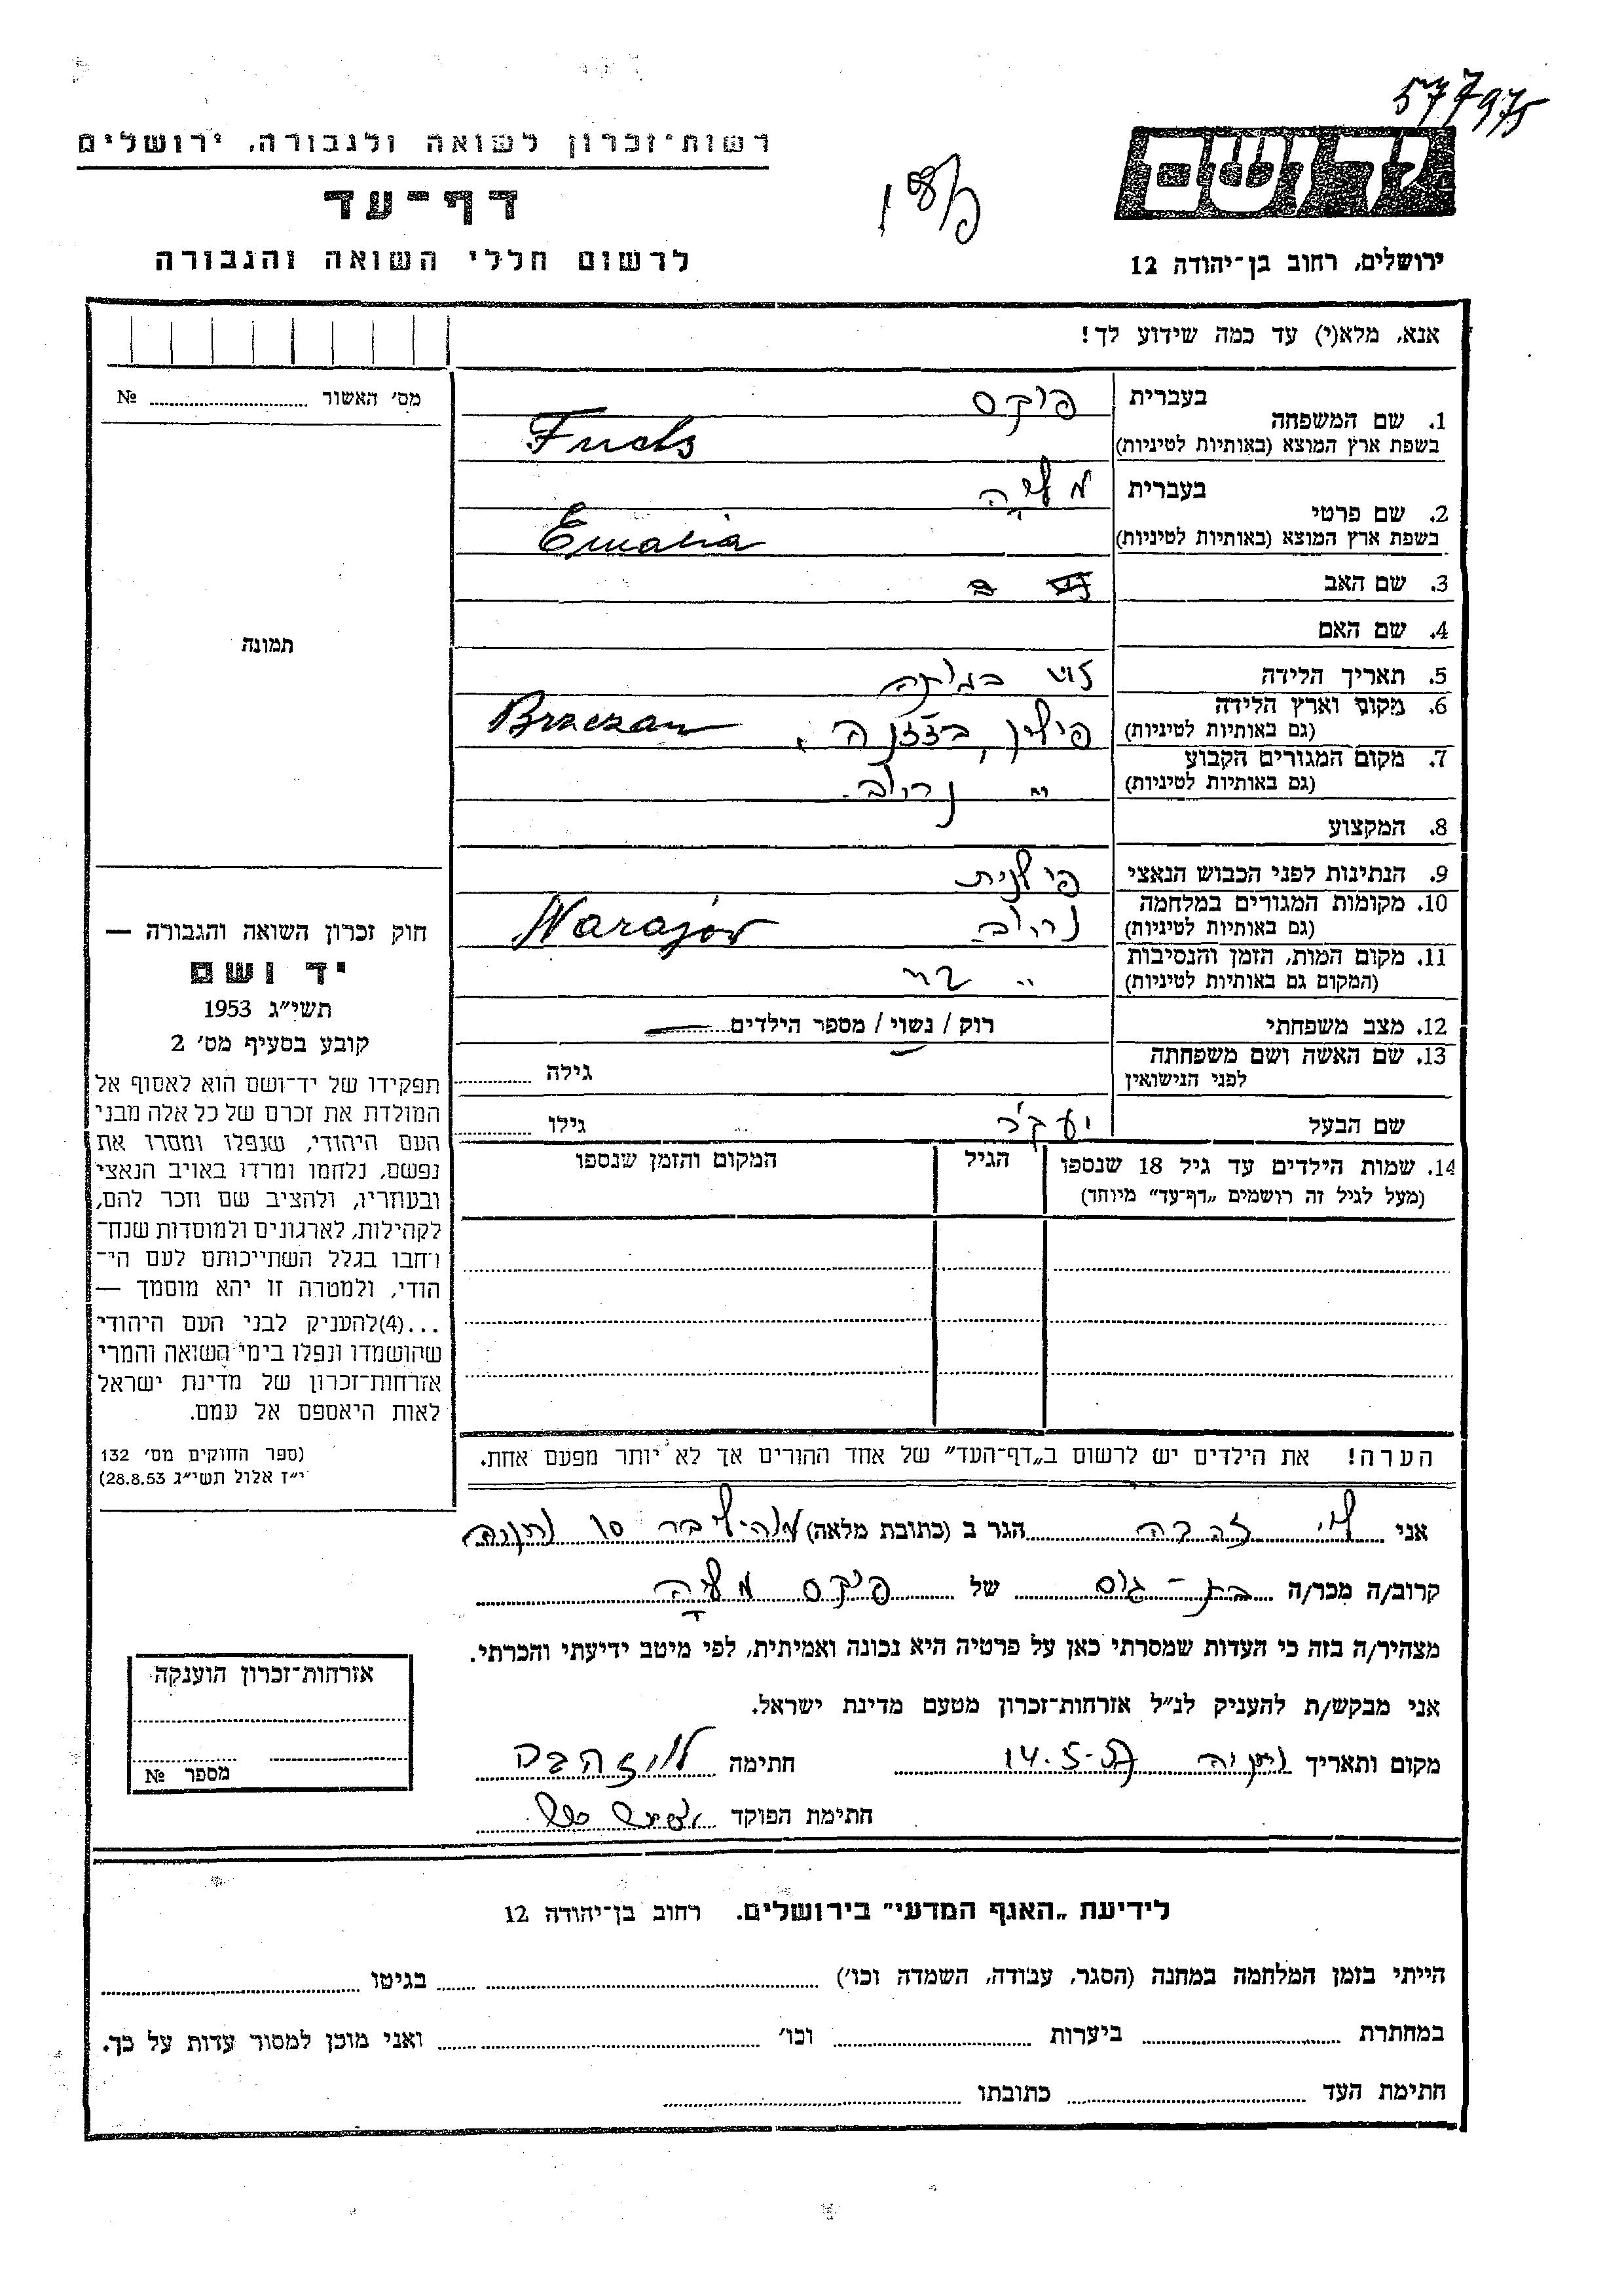 577975
רשות־זכרון לשואה ולגבורה, ירושלים
דף־עד
לרשום חללי השואה והגבורה
יד ושם
ירושלים, רחוב בן־יהודה 12
אנא, מלא(י) עד כמה שידוע לך!
מס׳ האשור № 
1. שם המשפחה בעברית פוקס
בשפת ארץ המוצא (באותיות לטיניות) Fuchs
2. שם פרטי בעברית
בשפת ארץ המוצא (באותיות לטיניות) Emalia
3. שם האב
4. שם האם
5. תאריך הלידה
6. מקום וארץ הלידה
(גם באותיות לטיניות) פולין, בז׳ז׳נה, Brzezan
7. מקום המגורים הקבוע
(גם באותיות לטיניות) "
8. המקצוע
9. הנתינות לפני הכבוש הנאצי פולנית
10. מקומות המגורים במלחמה
(גם באותיות לטיניות) Narajów
11. מקום המות, הזמן והנסיבות
(המקום גם באותיות לטיניות) "
12. מצב משפחתי רוק / נשוי / מספר הילדים
13. שם האשה ושם משפחתה
לפני הנישואין גילה
שם הבעל יעקב גילו
14. שמות הילדים עד גיל 18 שנספו הגיל המקום והזמן שנספו
(מעל לגיל זה רושמים „דף־עד״ מיוחד)
הערה! את הילדים יש לרשום ב„דף־העד״ של אחד ההורים אך לא יותר מפעם אחת.
תמונה
חוק זכרון השואה והגבורה —
יד ושם
תשי״ג 1953
קובע בסעיף מס׳ 2
תפקידו של יד־ושם הוא לאסוף אל
המולדת את זכרם של כל אלה מבני
העם היהודי, שנפלו ומסרו את
נפשם, נלחמו ומרדו באויב הנאצי
ובעוזריו, ולהציב שם וזכר להם,
לקהילות, לארגונים ולמוסדות שנח־
רחבו בגלל השתייכותם לעם הי־
הודי, ולמטרה זו יהא מוסמך —
...(4)להעניק לבני העם היהודי
שהושמדו ונפלו בימי השואה והמרי
אזרחות־זכרון של מדינת ישראל
לאות היאספם אל עמם.
(ספר החוקים מס׳ 132
י״ז אלול תשי״ג 28.8.53)
אני זהבה הגר ב (כתובת מלאה) 10 נתניה
קרוב/ה מכר/ה בת־ של פוקס
מצהיר/ה בזה כי העדות שמסרתי כאן על פרטיה היא נכונה ואמיתית, לפי מיטב ידיעתי והכרתי.
אני מבקש/ת להעניק לנ״ל אזרחות־זכרון מטעם מדינת ישראל.
מקום ותאריך נתניה 14.5.57 חתימה זהבה
חתימת הפוקד
אזרחות־זכרון הוענקה
מספר №
לידיעת „האגף המדעי״ בירושלים. רחוב בן־יהודה 12
הייתי בזמן המלחמה במחנה (הסגר, עבודה, השמדה וכו׳) בגיטו
במחתרת ביערות וכו׳ ואני מוכן למסור עדות על כך.
חתימת העד כתובתו